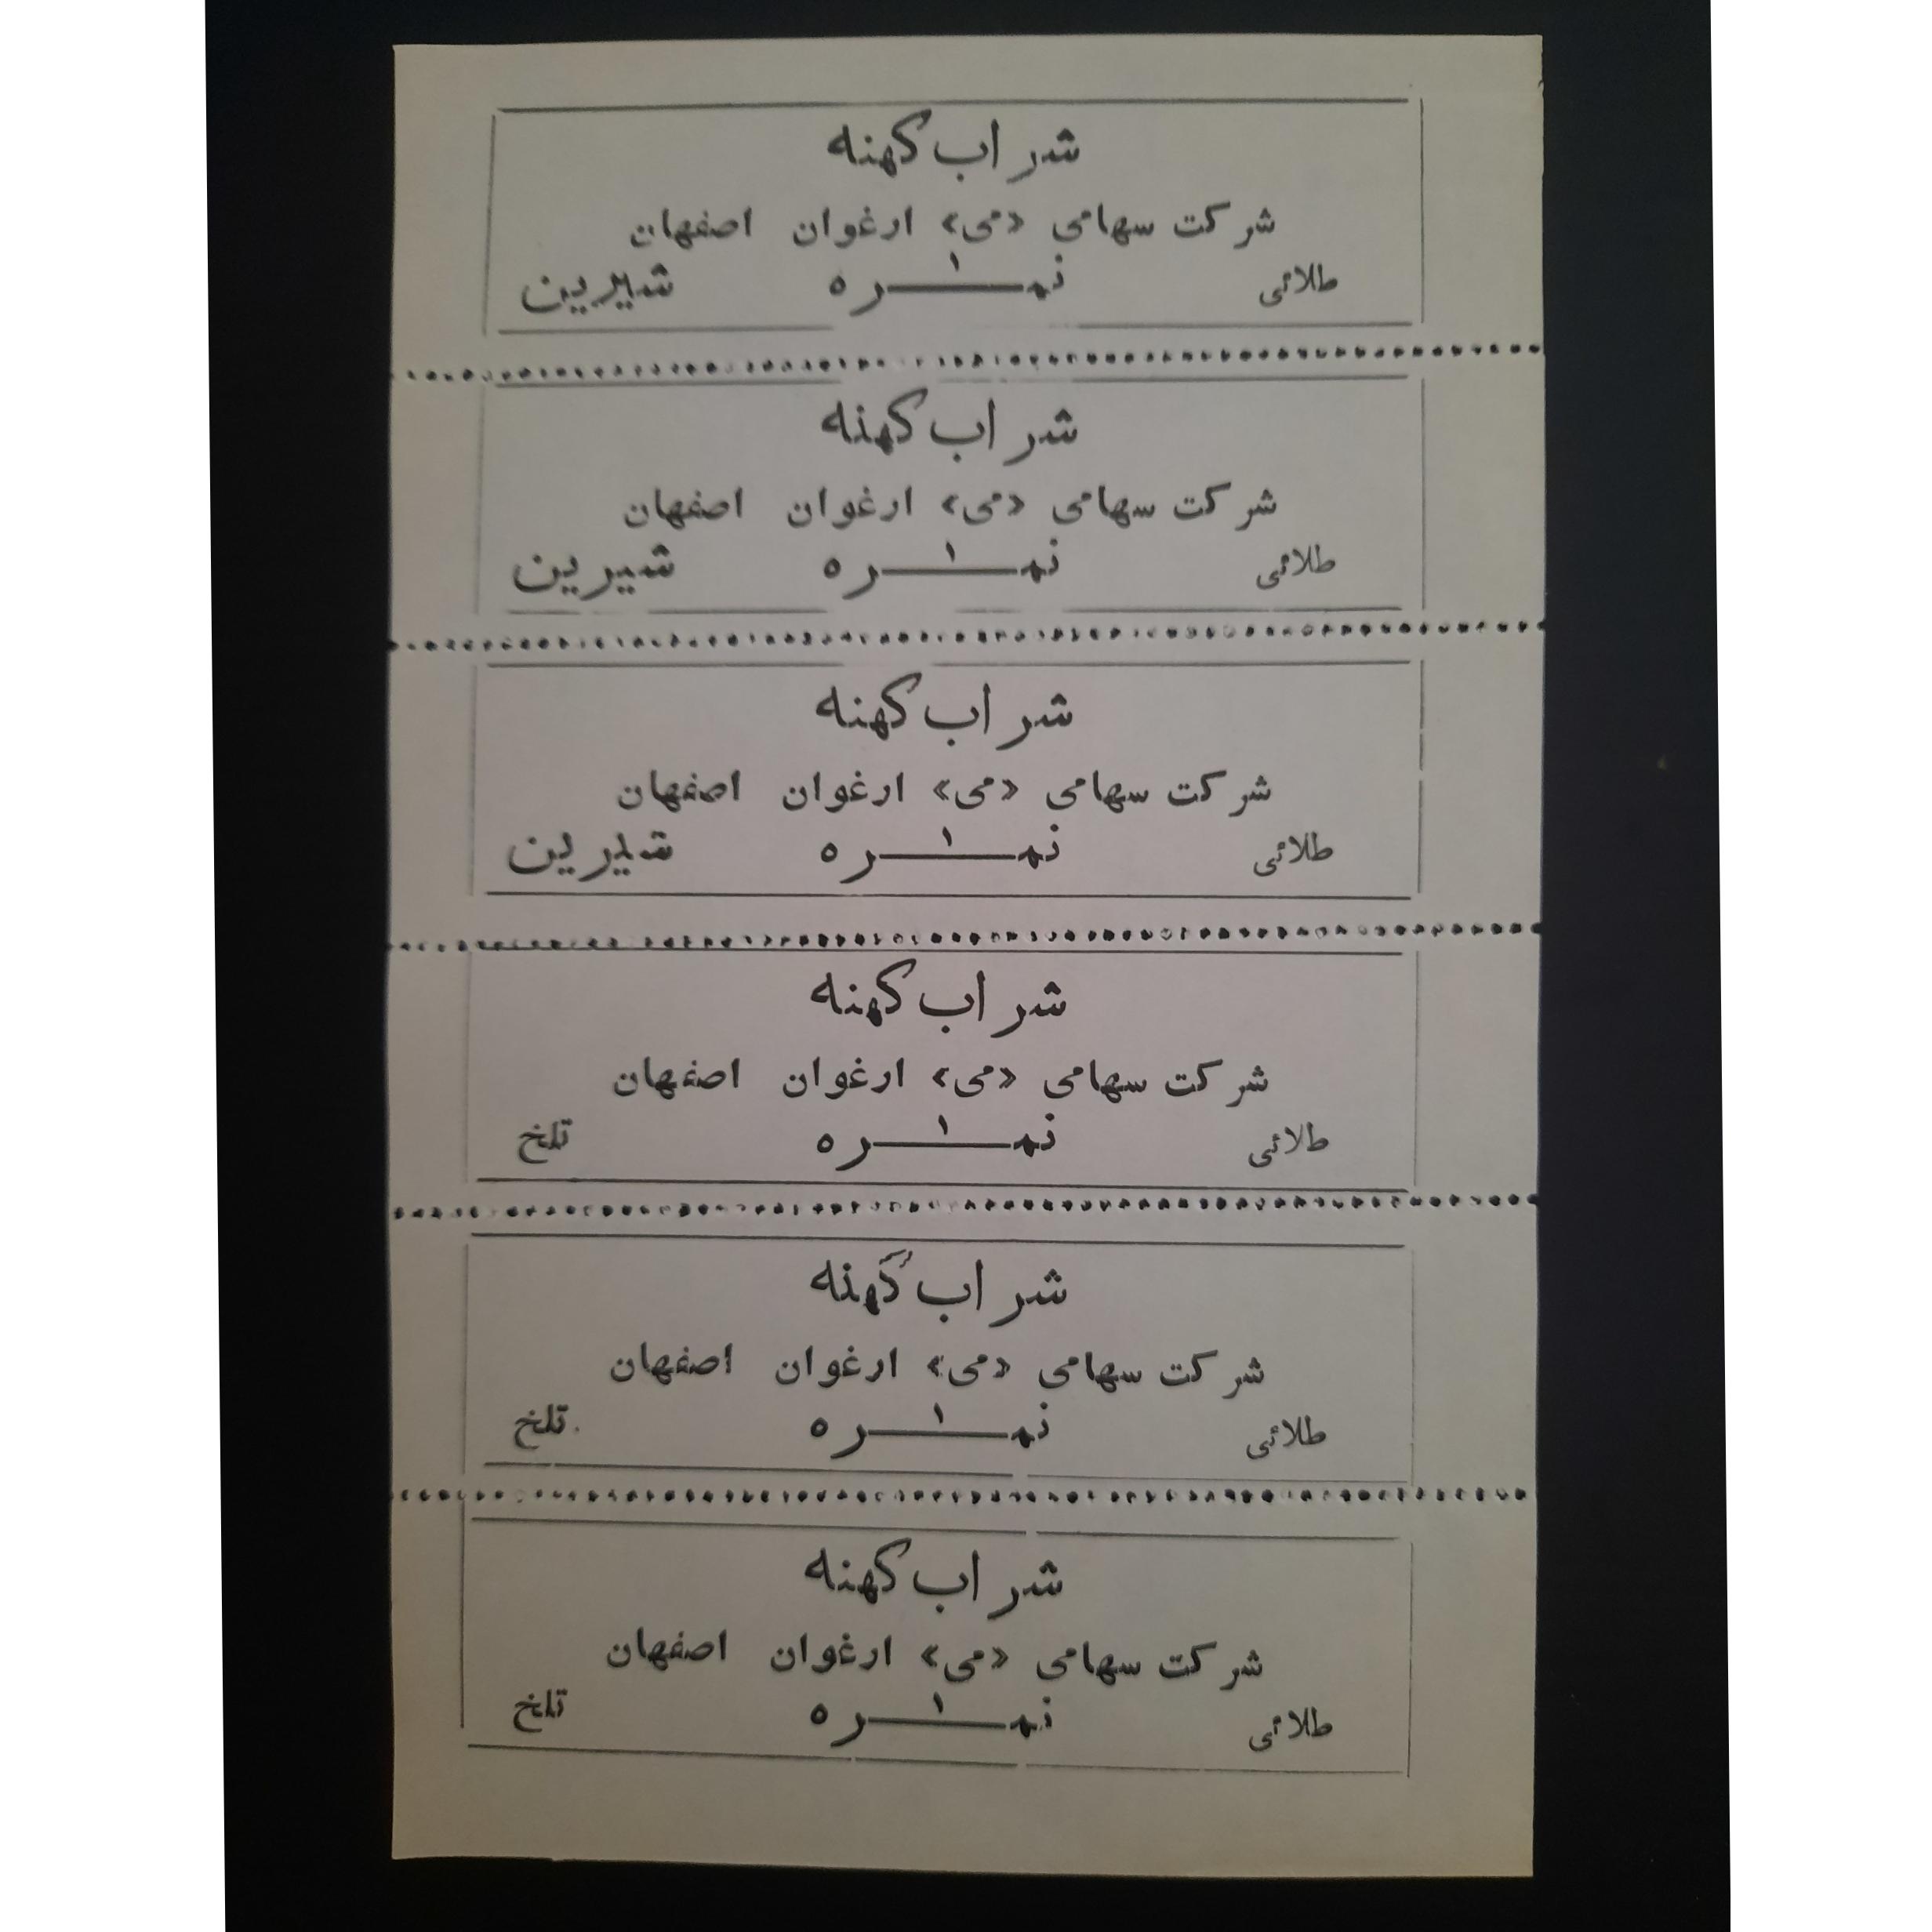 شراب کهنه
شرکت سهامی «می» ارغوان اصفهان
طلائی نمره ۱ شیرین
شراب کهنه
شرکت سهامی «می» ارغوان اصفهان
طلائی نمره ۱ شیرین
شراب کهنه
شرکت سهامی «می» ارغوان اصفهان
طلائی نمره ۱ شیرین
شراب کهنه
شرکت سهامی «می» ارغوان اصفهان
طلائی نمره ۱ تلخ
شراب کهنه
شرکت سهامی «می» ارغوان اصفهان
طلائی نمره ۱ تلخ
شراب کهنه
شرکت سهامی «می» ارغوان اصفهان
طلائی نمره ۱ تلخ